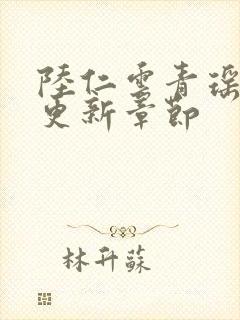 陸仁雲青瑶
更新章節
林升蘇